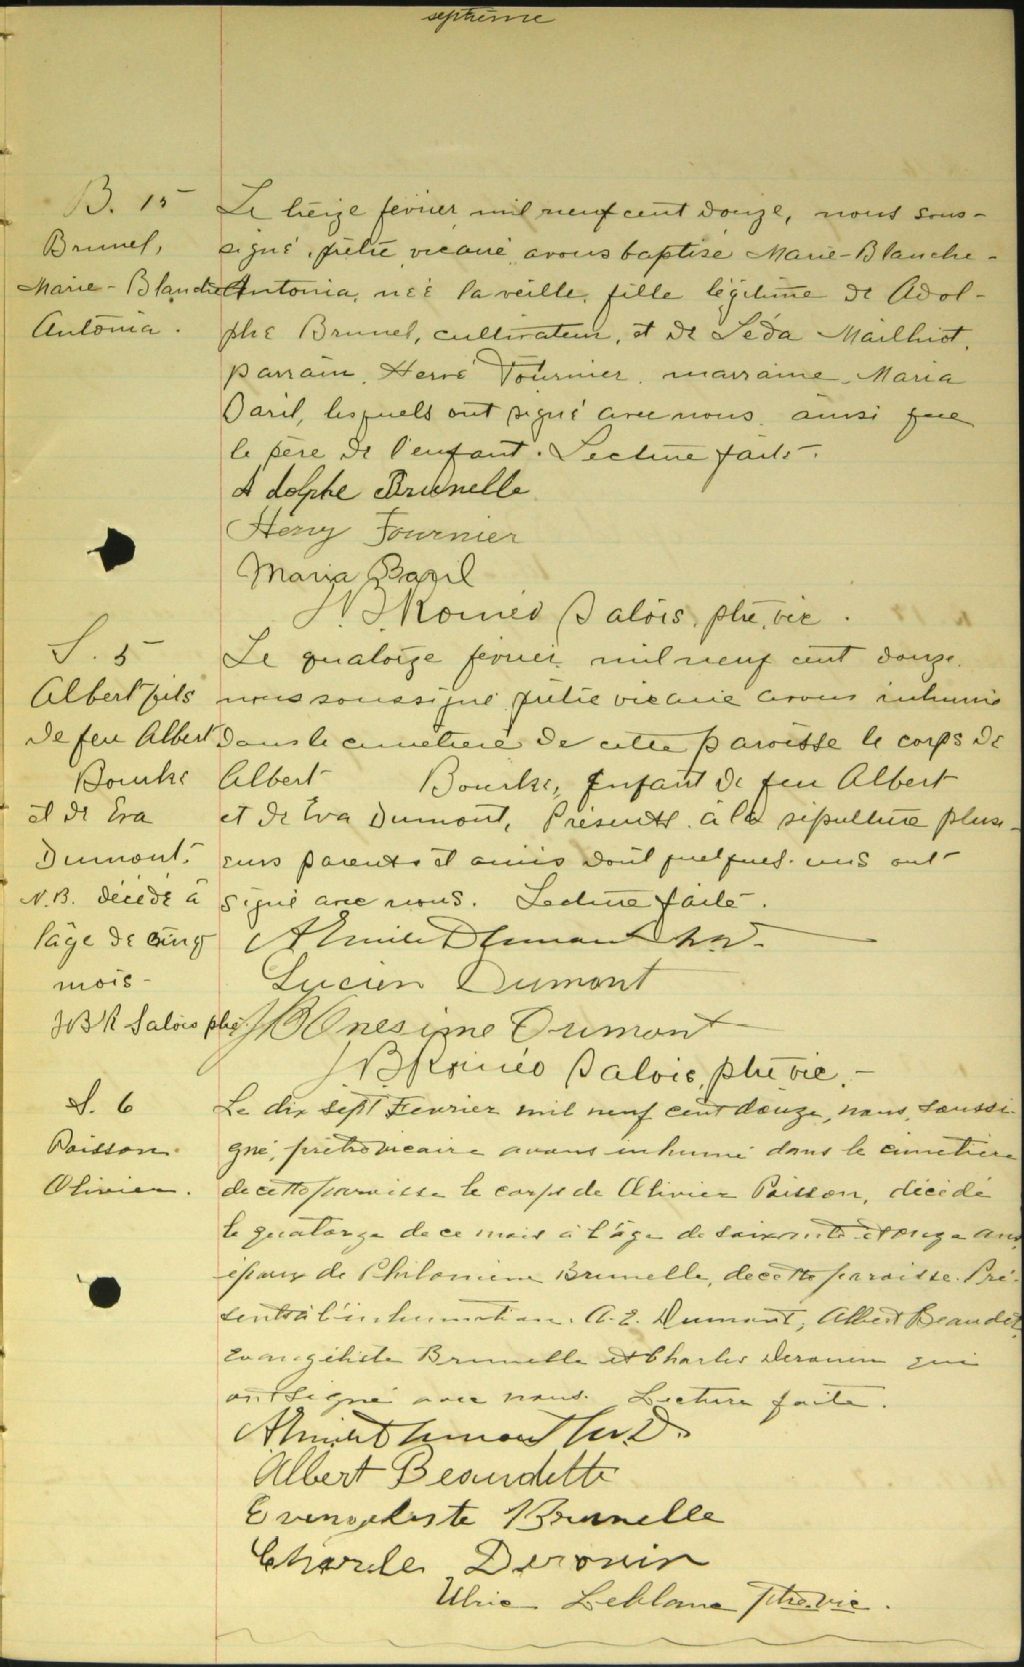 septième
B. 15
Brunel,
Marie-Blanche
Antonia.
Le treize février mil neuf cent douze, nous sous-
signé, prêtre vicaire avons baptisé Marie-Blanche-
Antonia, née la veille, fille légitime de Adol-
phe Brunel, cultivateur, et de Léda Mailhiot,
parrain, Hervé Fournier, marraine, Maria
Baril, lesquels ont signé avec nous, ainsi que
le père de l'enfant. Lecture faite.
Adolphe Brunelle
Henry Fournier
Maria Baril
J.B Roméo Salois, ptre, vic.
S. 5
Albert fils
de feu Albert
Bourke
et de Eva
Dumont.
N.B. décédé à
l'âge de cinq
mois-
JBR Salois ptre.
Le quatorze février mil neuf cent douze,
nous soussigné prêtre vicaire avons inhumé
dans le cimetière de cette paroisse le corps de
Albert Bourke, enfant de feu Albert
et de Eva Dumont, Présents à la sépulture plusi-
eurs parents et amis dont quelques-uns ont
signé avec nous. Lecture faite.
A Emile Dumont M.D.
Lucien Dumont
JB Onesime Dumont
J B Roméo Salois, ptre vic.-
S. 6
Poisson
Olivier.
Le dix sept Fevrier mil neuf cent douze, nous, soussi-
gné, prêtre vicaire avons inhumé dans le cimetière
de cette paroisse le corps de Olivier Poisson, décédé
le quatorze de ce mois à l'âge de soixante et onze ans,
époux de Philomène Brunelle, de cette paroisse. Pré-
sents à l'inhumation. A. E. Dumont, Albert Beaudet,
Evangéliste Brunelle et Charles Derouin qui
ont signé avec nous. Lecture faite.
A Emile Dumont M.D.
Albert Beaudette
Evengeliste Brunelle
Charles Derouin
Ulric Leblanc ptre.vic.